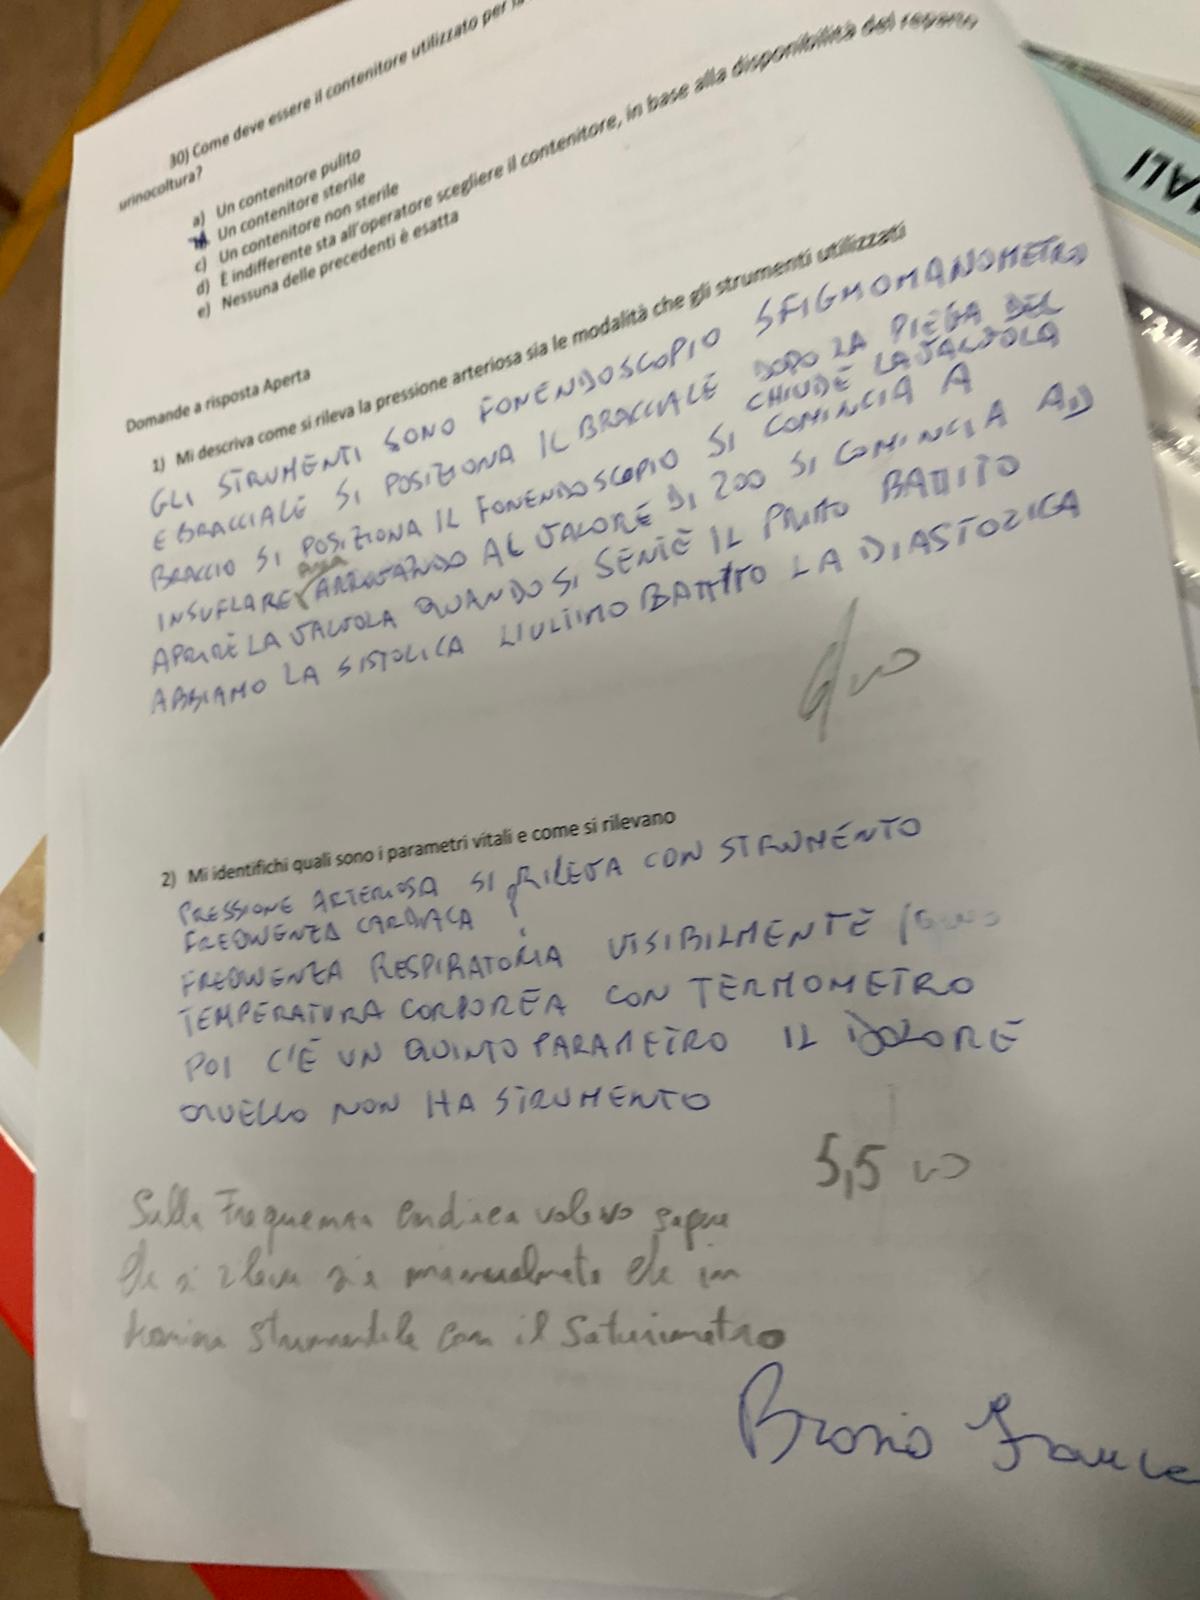 30) Come deve essere il contenitore utilizzato per la
urinocoltura?
a) Un contenitore pulito
Un contenitore sterile
c) Un contenitore non sterile
d) È indifferente sta all'operatore scegliere il contenitore, in base alla disponibilità del reparto
e) Nessuna delle precedenti è esatta
Domande a risposta Aperta
1) Mi descriva come si rileva la pressione arteriosa sia le modalità che gli strumenti utilizzati
GLI STRUMENTI SONO FONENDOSCOPIO SFIGMOMANOMETRO
E BRACCIALE SI POSIZIONA IL BRACCIALE DOPO LA PIEGA DEL
BRACCIO SI POSIZIONA IL FONENDOSCOPIO SI CHIUDE LA VALVOLA
SI COMINCIA A
INSUFLARE ARIA ARRIVANDO AL VALORE DI 200 SI COMINCIA AD
APRIRE LA VALVOLA QUANDO SI SENTE IL PRIMO BATTITO
ABBIAMO LA SISTOLICA L'ULTIMO BATTITO LA DIASTOLICA
2) Mi identifichi quali sono i parametri vitali e come si rilevano
PRESSIONE ARTERIOSA SI RILEVA CON STRUMENTO
FREQUENZA CARDIACA
FREQUENZA RESPIRATORIA VISIBILMENTE
TEMPERATURA CORPOREA CON TERMOMETRO
POI C'È UN QUINTO PARAMETRO IL DOLORE
QUELLO NON HA STRUMENTO
5,5
Sulla Frequenza Cardiaca volevo sapere
che si rileva sia manualmente che in
maniera strumentale con il Saturimetro
ALI